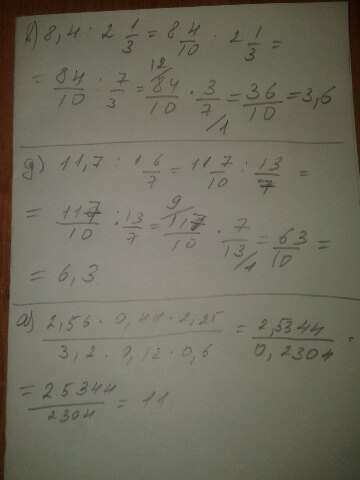 в) 8,4 : 2 1/3 = 8 4/10 : 2 1/3 =
= 84/10 : 7/3 = 84/10 · 3/7 = 36/10 = 3,6
12
1
g) 11,7 : 1 6/7 = 11 7/10 : 13/7 =
= 117/10 : 13/7 = 117/10 · 7/13 = 63/10 =
9
1
= 6,3
а) 2,56 · 0,44 · 2,25 / 3,2 · 0,12 · 0,6 = 2,5344 / 0,2304 =
= 25344/2304 = 11